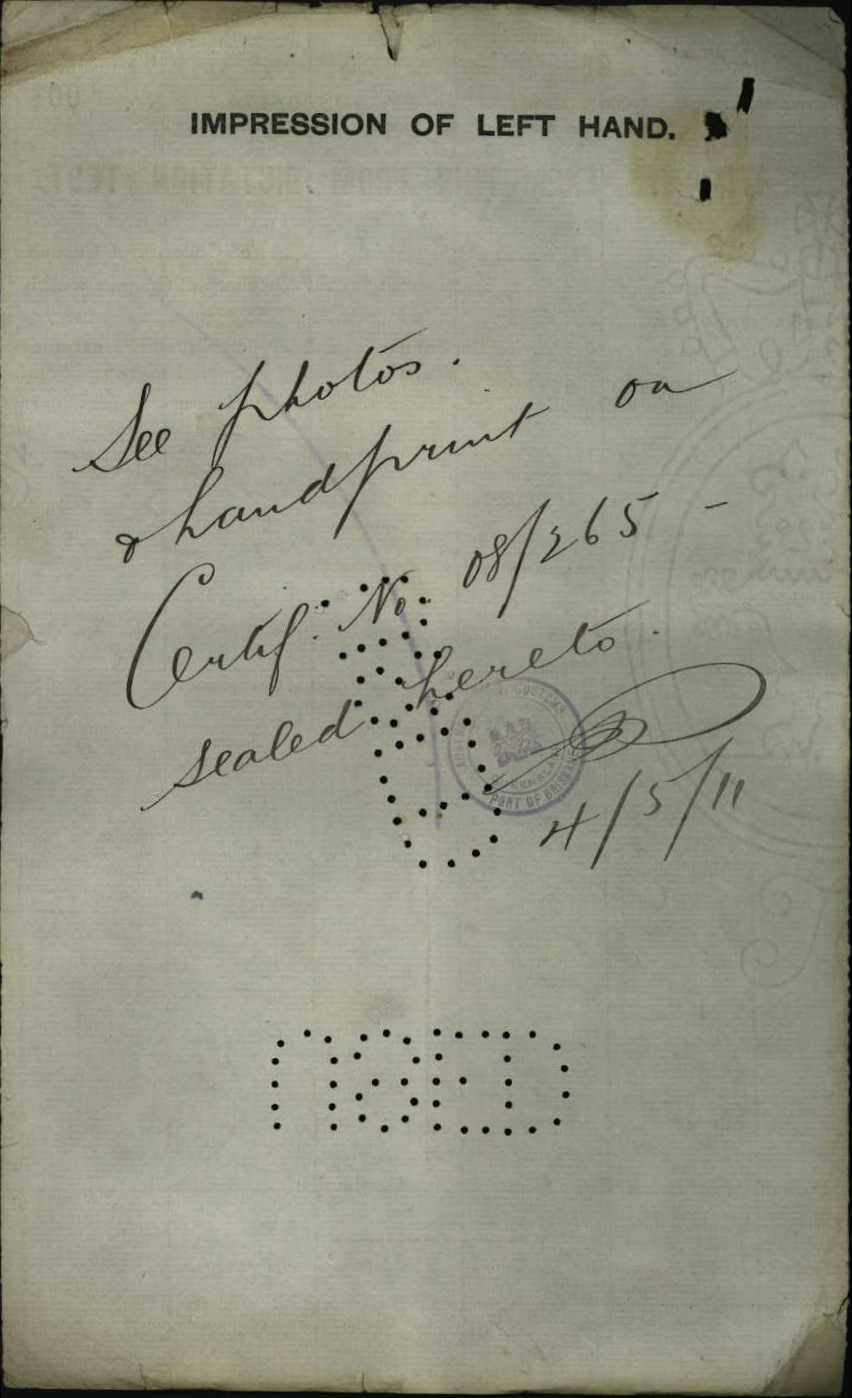 IMPRESSION OF LEFT HAND.
See photos.
& handprint on
Certif. No. 08/265 -
sealed hereto.
CUSTOMS
PORT OF BRISBANE
4/5/11
USED